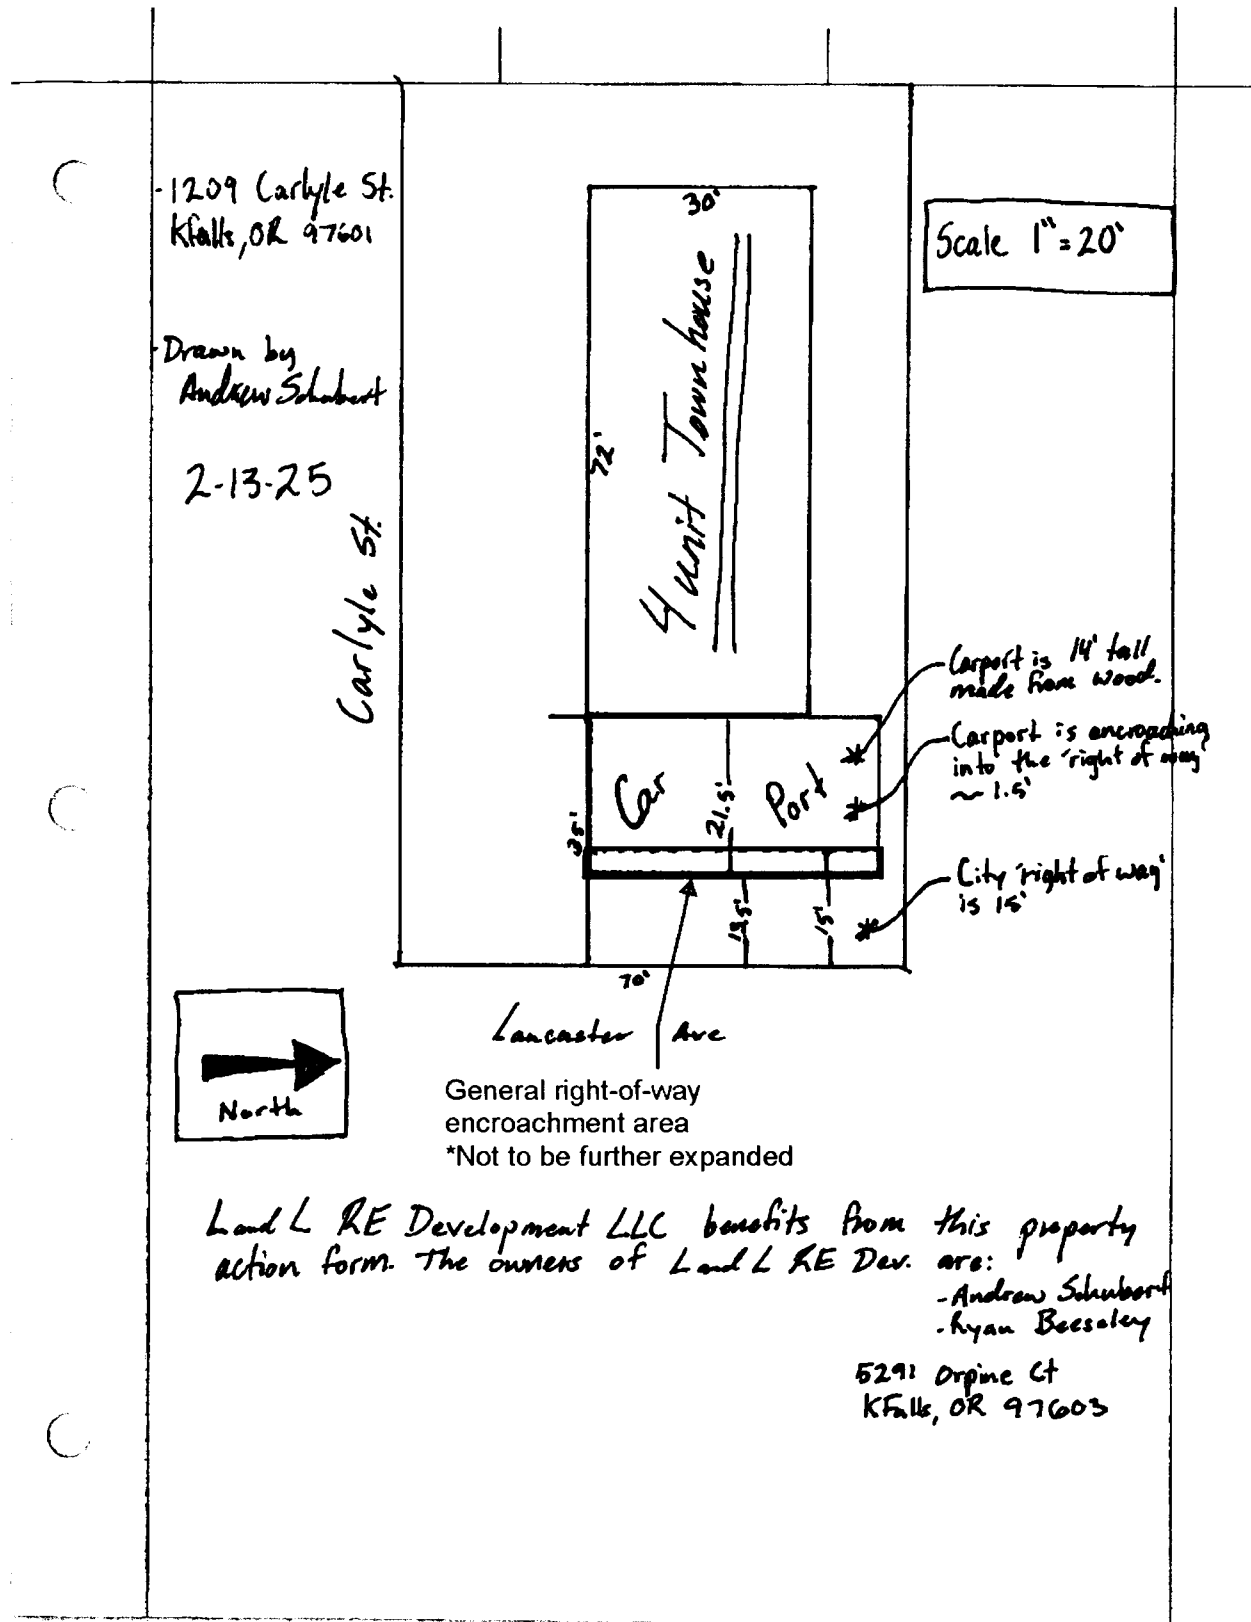 -1209 Carlyle St.
Kfalls, OR 97601
30'
Scale 1"=20'
-Drawn by
Andrew Schubert
2-13-25
72'
4 unit Townhouse
Carlyle St.
Carport is 14' tall
made from wood.
Carport is encroaching
into the 'right of way'
~ 1.5'
Car Port
21.5'
City 'right of way'
is 15'
13.5'
15'
70'
Lancaster Ave
North
General right-of-way
encroachment area
*Not to be further expanded
L and L RE Development LLC benefits from this property
action form. The owners of L and L RE Dev. are:
-Andrew Schubert
-Ryan Beesley
5291 Orpine Ct
KFalls, OR 97603